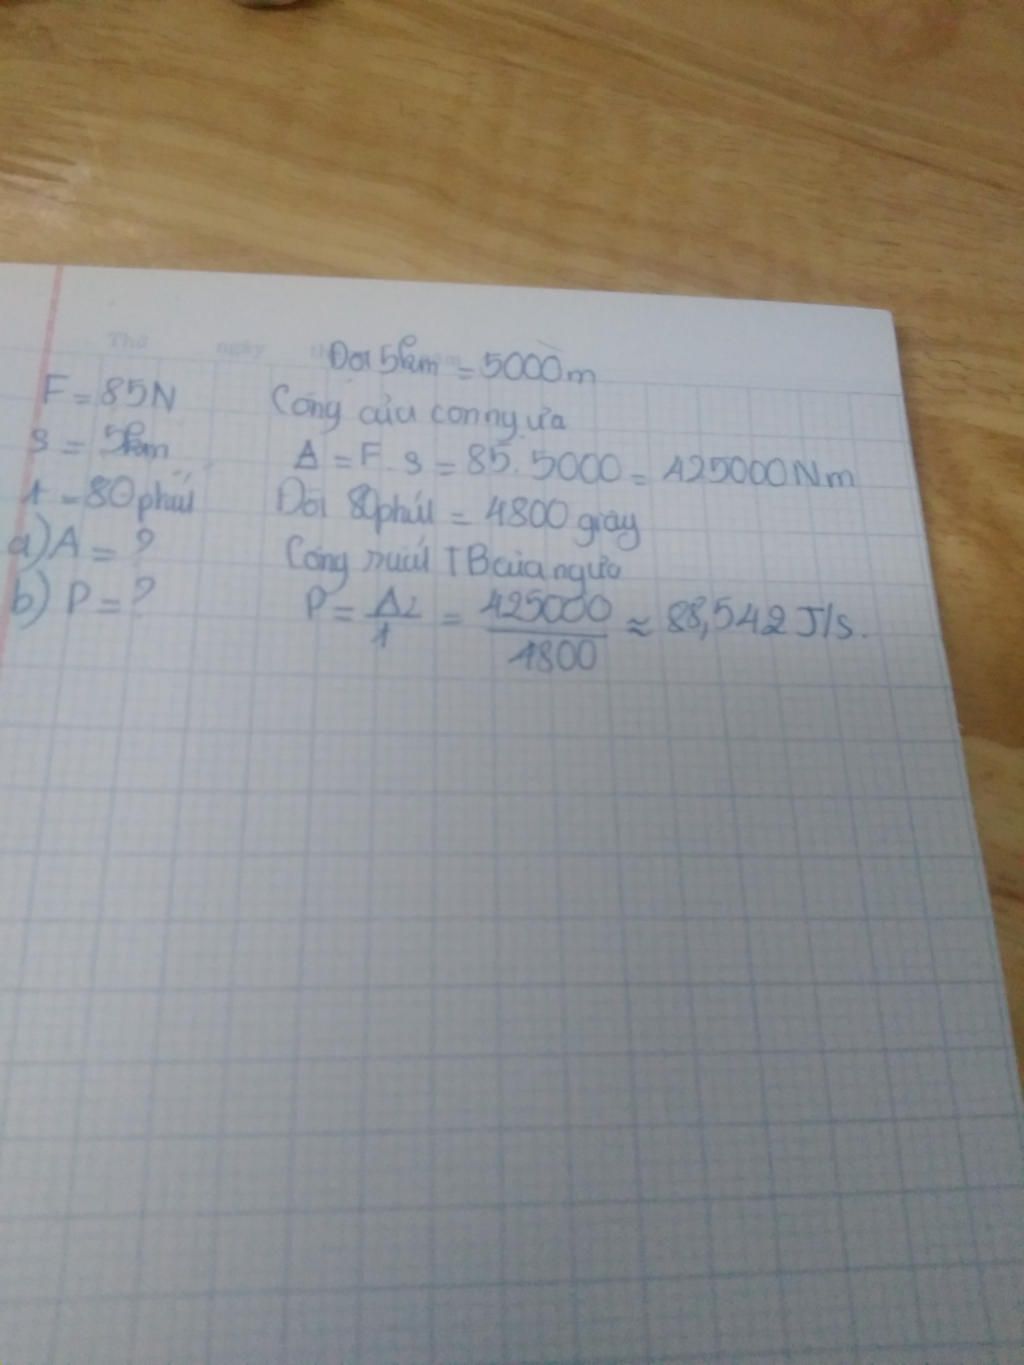 Thứ ngày
Đổi 5km = 5000m
F = 85N
Công của con ngựa
s = 5km
A = F . s = 85. 5000 = 425000Nm
t = 80 phút
Đổi 80 phút = 4800 giây
a) A = ?
Công suất TB của ngựa
b) P = ?
P = A / t = 425000 / 4800 ≈ 88,542 J/s.